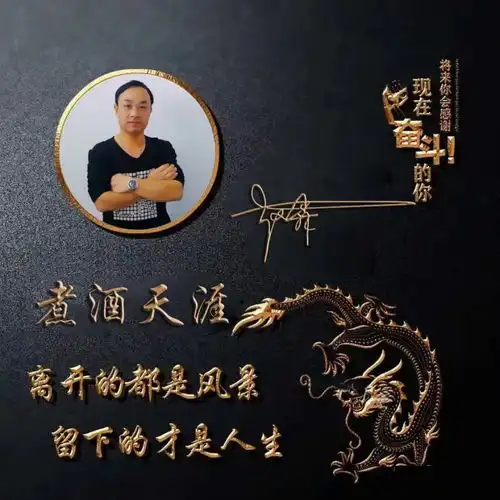 将来你会感谢
现在
奋斗!
的你
煮酒天涯
离开的都是风景
留下的才是人生